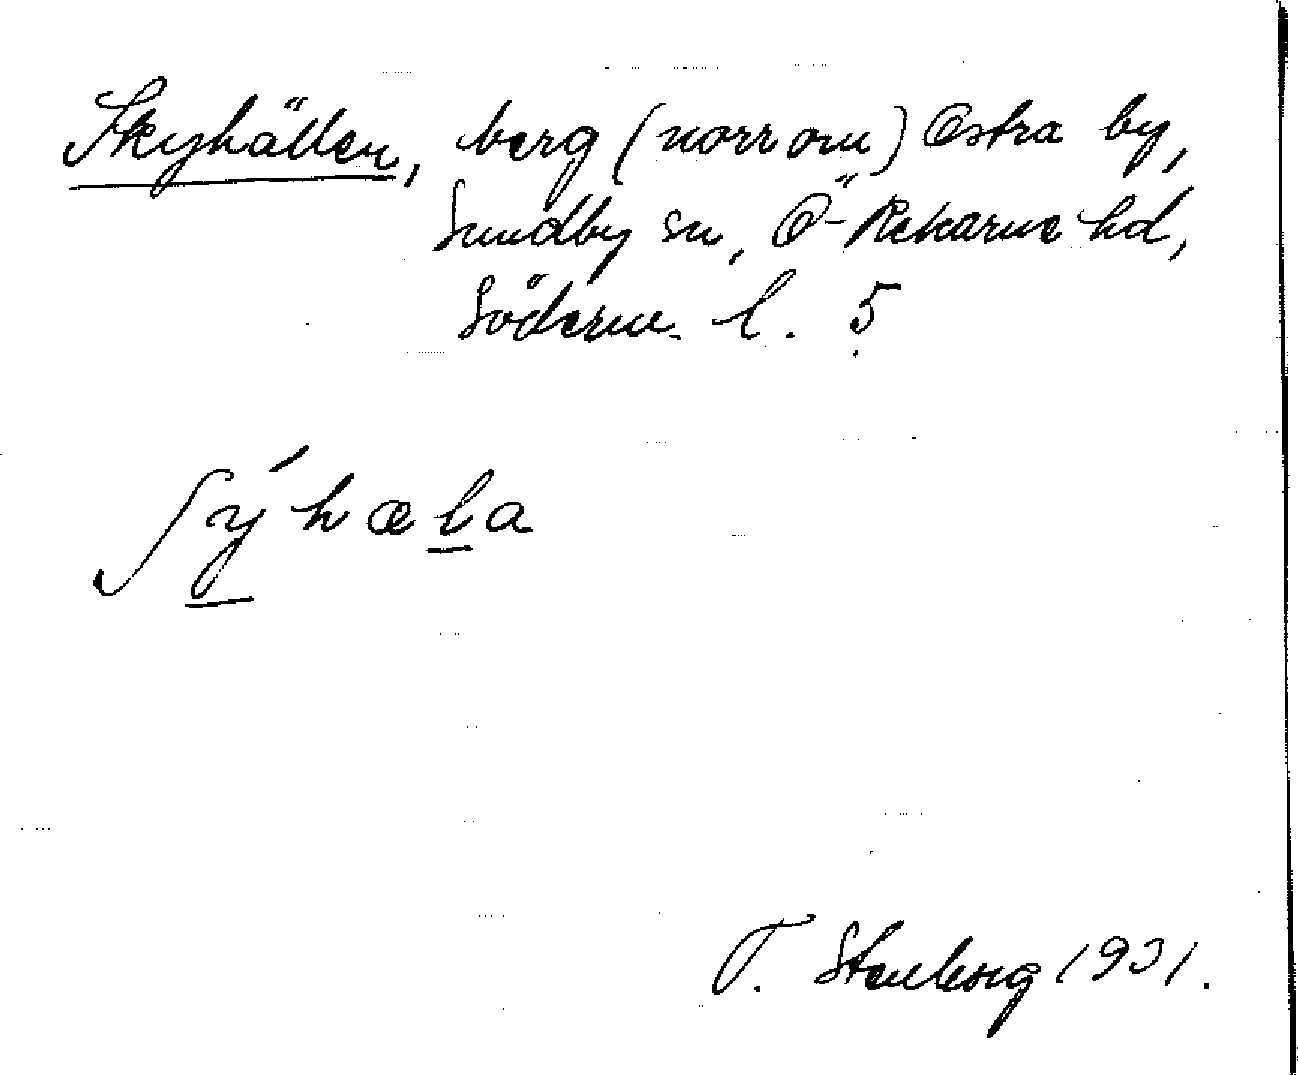 Skyhällen, berg (norr om) Östra by,
Sundby sn, Ö-Rekarne hd,
Söderm. l. 5
ʃýhæla
T. Stenborg 1931.